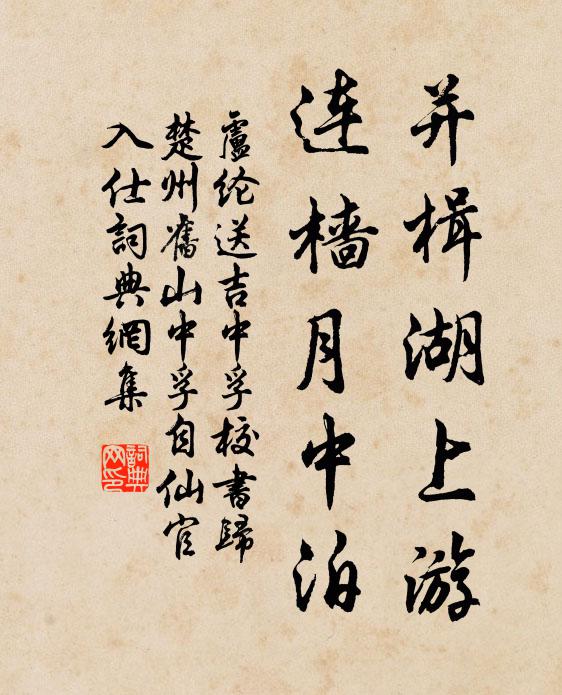 并楫湖上游
连樯月中泊
盧纶送吉中孚校書歸
楚州舊山中孚自仙官
入仕詞典網集
詞典网印